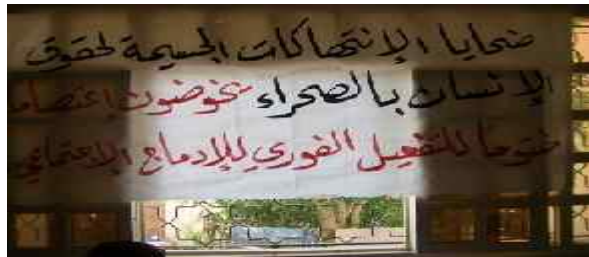 ضحايا الإنتهاكات الجسيمة لحقوق
الإنسان بالصحراء يخوضون إعتصاما
مفتوحا للتفعيل الفوري للإدماج الإجتماعي